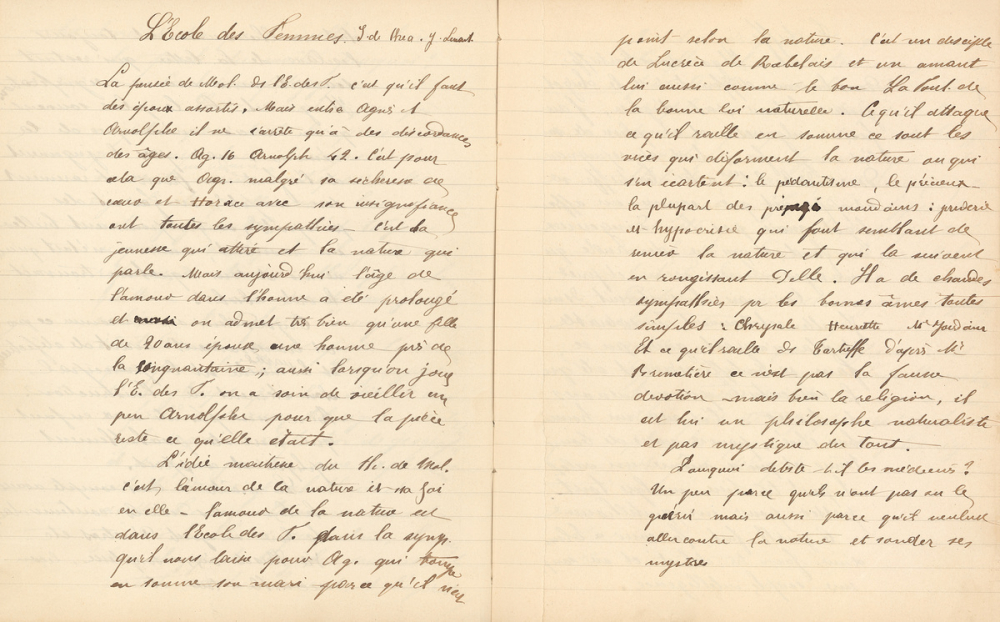 L'Ecole des Femmes. J. de
La pensée de Mol. ds l'E. des F. c'est qu'il faut
des époux assortis. Mais entre Agnès et
Arnolphe il ne s'arrête qu'à des discordances
des âges. Ag. 16 Arnolph 42. C'est pour
cela que malgré sa sécheresse de
cœur et Horace avec son insignifiance
ont toutes les sympathies – C'est la
jeunesse qui attire et la nature qui
parle. Mais aujourd'hui l'âge de
l'amour dans l'homme a été prolongé
et on admet très bien qu'une fille
de 20 ans épouse une homme près de
la cinquantaine ; aussi lorsqu'on joue
l'E. des F. on a soin de vieillir un
peu Arnolphe pour que la pièce
reste ce qu'elle était.
L'idée maîtresse du th. de Mol.
c'est l'amour de la nature et sa foi
en elle – l'amour de la nature est
dans l'Ecole des F. dans la symp.
qu'il nous laisse pour Ag. qui trompe
en somme son mari parce qu'il n'est
point selon la nature. C'est un disciple
de Lucrèce de Rabelais et un amant
lui aussi comme le bon La Font. de
la bonne loi naturelle. Ce qu'il attaque
ce qu'il raille en somme ce sont les
vices qui déforment la nature ou qui
s'en écartent : le pédantisme, le précieux
la plupart des mondains : pruderie
et hypocrisie qui font semblant de
la nature et qui la suivent
en rougissant d'elle. Il a de chaudes
sympathies pr les bonnes âmes toutes
simples : Chrysale Henriette Mr Jourdain
Et ce qu'il raille ds Tartuffe d'après Mr
Brunetière ce n'est pas la fausse
dévotion – mais bien la religion, il
est lui un philosophe naturaliste
et pas mystique du tout.
Pourquoi déteste-t-il les médecins ?
Un peu parce qu'ils n'ont pas su le
guérir mais aussi parce qu'il veulent
aller contre la nature et sonder ses
mystères